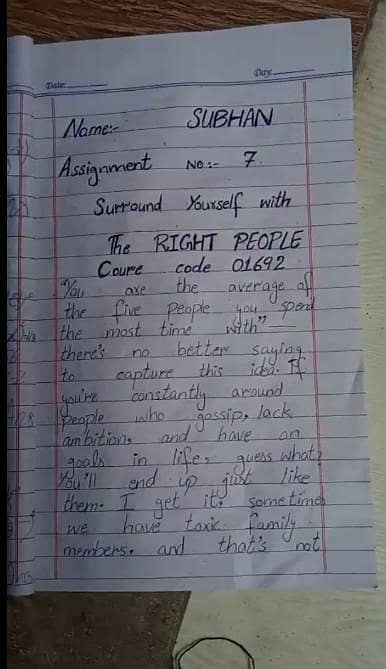 Date: Day:
Name:- SUBHAN
Assignment No:- 7.
Surround Yourself with
The RIGHT PEOPLE
Coure code 01692
"You are the average of
the five People you spend
the most time with" —
there's no better saying
to capture this idea. If
you're constantly around
People who gossip, lack
ambition, and have on
goals in life, guess what?
You'll end up just like
them. I get it, sometimes
we have toxic family
members, and that's not